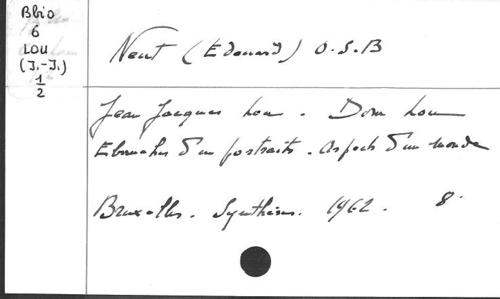 Bbio
6
LOU
(J.-J.)
1
2
Neut (Edouard) O.S.B
Jean Jacques Lou. Dom Lou
Ebauches d'un portraits. Aspects d'un monde
Bruxelles. Synthèses. 1962. 8°